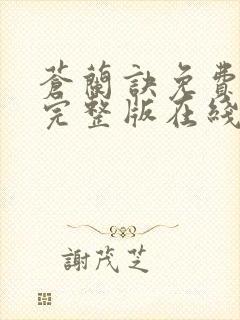 蒼蘭訣免費
完整版在綫
謝茂芝